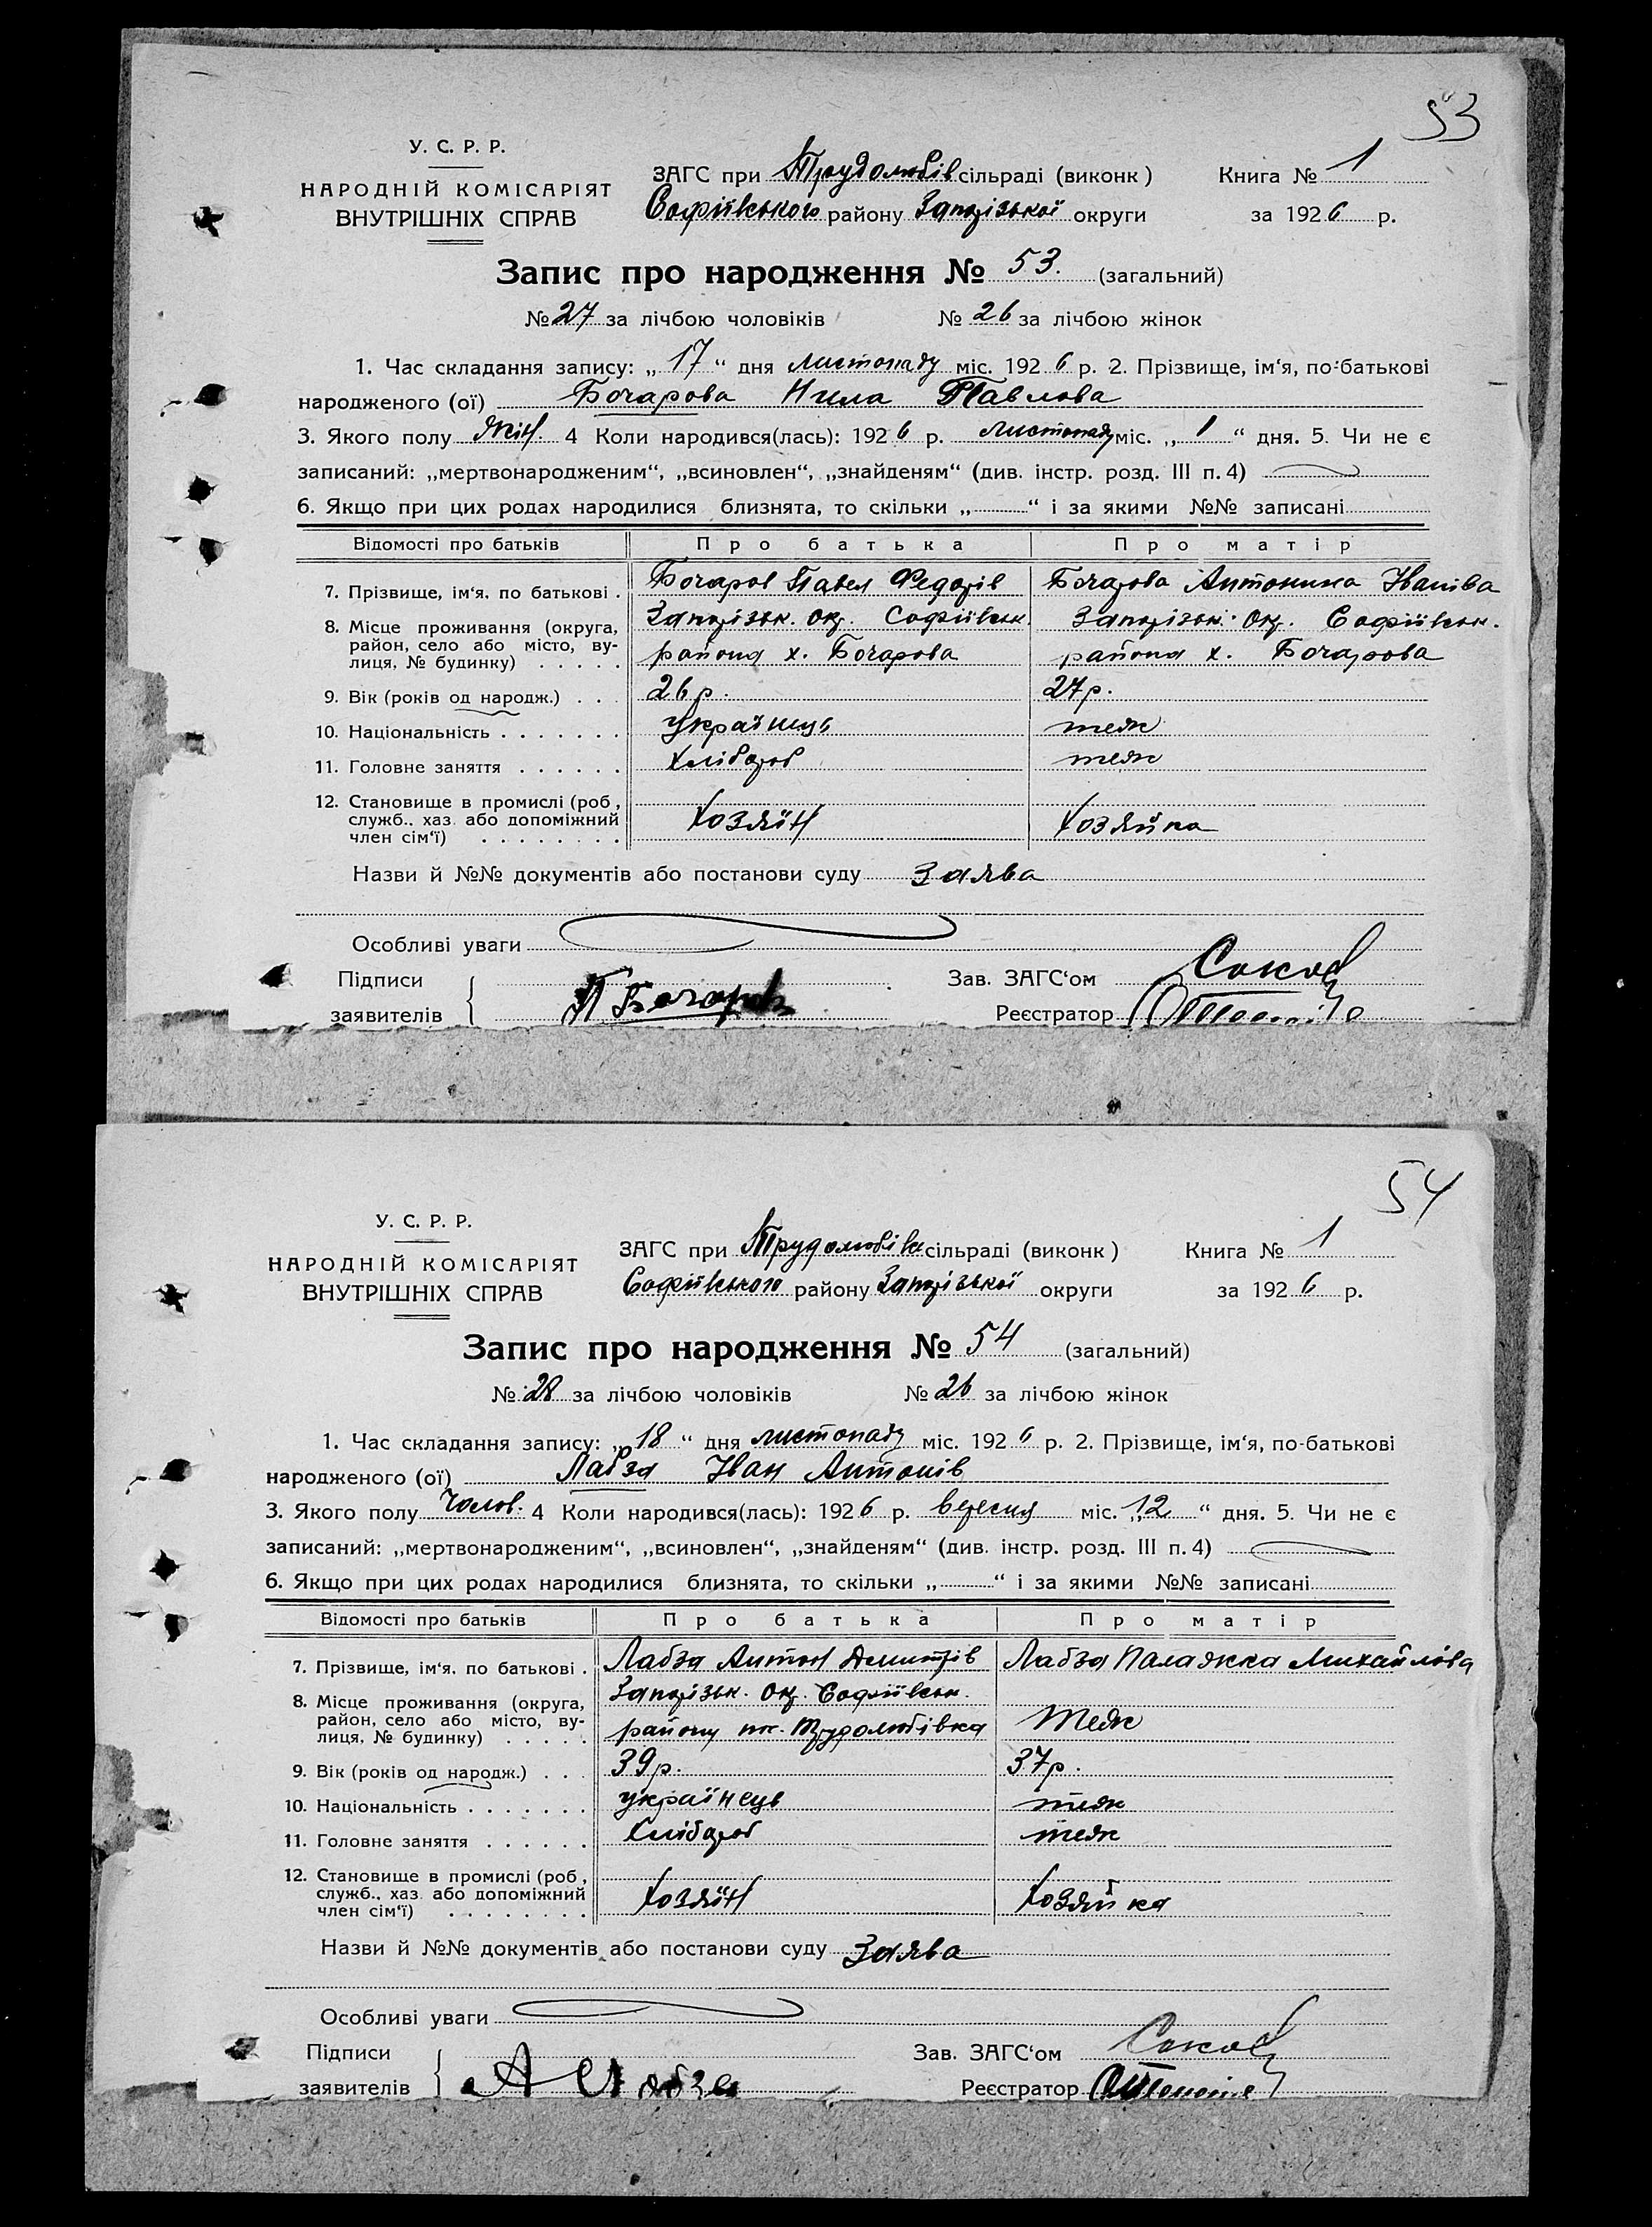 53
У. С. Р. Р.
НАРОДНІЙ КОМІСАРІЯТ
ВНУТРІШНІХ СПРАВ
ЗАГС при Трудолюбів сільраді (виконк) Книга № 1
Софіївського району Запорізької округи за 1926 р.
Запис про народження № 53. (загальний)
№ 27 за лічбою чоловіків № 26 за лічбою жінок
1. Час складання запису: „ 17 “ дня листопаду міс. 1926 р. 2. Прізвище, ім‘я, по-батькові
народженого (ої) Бочарова Нила Павлова
3. Якого полу жін. 4 Коли народився(лась): 1926 р. листопаду міс. „ 1 “ дня. 5. Чи не є
записаний: „мертвонародженим“, „всиновлен“, „знайденям“ (див. інстр. розд. III п. 4)
6. Якщо при цих родах народилися близнята, то скільки „ “ і за якими №№ записані
Відомості про батьків Про батька Про матір
7. Прізвище, ім‘я, по батькові . Бочаров Павел Федорів Бочарова Антонина Іванівa
8. Місце проживання (округа, район, село або місто, вулиця, № будинку) Запорізьк. Окр. Софіївськ. Запорізьк. Окр. Софіївськ.
района х. Бочарова района х. Бочарова
9. Вік (років од народж.) . . . 26 р. 27 р.
10. Національність . . . . . . . українць теж
11. Головне заняття . . . . . . Хлібороб теж
12. Становище в промислі (роб, служб., хаз. або допоміжний член сім‘ї) . . . . . . . . Хозяїн Хозяйка
Назви й №№ документів або постанови суду Заява
Особливі уваги
Підписи Зав. ЗАГС‘ом
заявителів П Бочаров Реєстратор
54
У. С. Р. Р.
НАРОДНІЙ КОМІСАРІЯТ
ВНУТРІШНІХ СПРАВ
ЗАГС при Трудолюбівск сільраді (виконк) Книга № 1
Софіївського району Запорізької округи за 1926 р.
Запис про народження № 54 (загальний)
№ 28 за лічбою чоловіків № 26 за лічбою жінок
1. Час складання запису: „ 18 “ дня листопаду міс. 1926 р. 2. Прізвище, ім‘я, по-батькові
народженого (ої) Лабза Іван Антонів
3. Якого полу Чолов. 4 Коли народився(лась): 1926 р. вересня міс. „ 12 “ дня. 5. Чи не є
записаний: „мертвонародженим“, „всиновлен“, „знайденям“ (див. інстр. розд. III п. 4)
6. Якщо при цих родах народилися близнята, то скільки „ “ і за якими №№ записані
Відомості про батьків Про батька Про матір
7. Прізвище, ім‘я, по батькові . Лабза Антон Дмитрів Лабза Палажка Михайлова
8. Місце проживання (округа, район, село або місто, вулиця, № будинку) Запорізьк. Окр. Софіївськ.
району Трудолюбівка Теж
9. Вік (років од народж.) . . . 39 р. 37 р.
10. Національність . . . . . . . українець теж
11. Головне заняття . . . . . . Хлібороб теж
12. Становище в промислі (роб, служб., хаз. або допоміжний член сім‘ї) . . . . . . . . Хозяїн Хозяйка
Назви й №№ документів або постанови суду Заява
Особливі уваги
Підписи Зав. ЗАГС‘ом
заявителів А Лабза Реєстратор